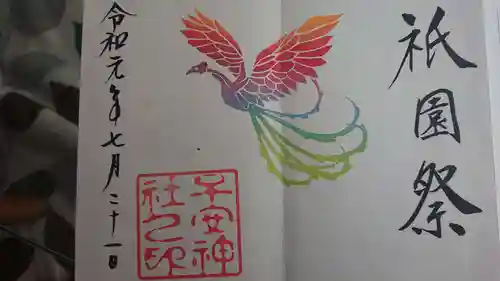 祇園祭
令和元年七月二十一日
子安神
社之印